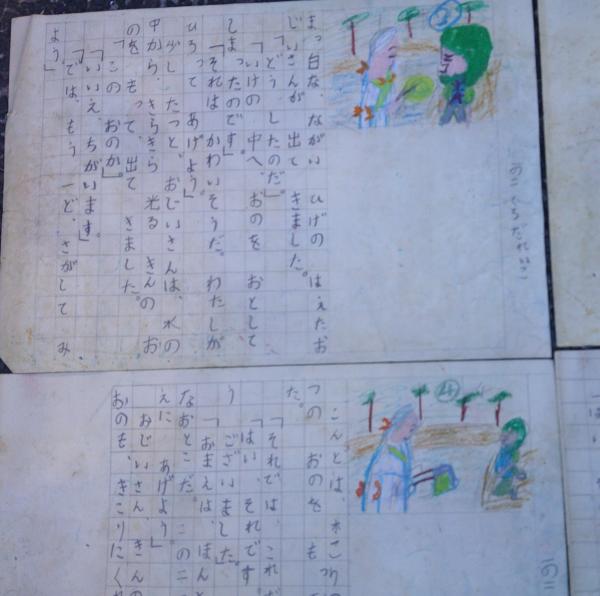 まっ白な ながい ひげの はえたお
じいさんが 出て きました。
「どう したのだ」。
「いけの 中へ、おのを おとして
しまったのです」。
「それは かわいそうだ。わたしが
ひろって あげよう」。
少し たつと、おじいさんは、水の
中から、きらきら 光る きんの お
のを もって、出て きました。
「この おのか」。
「いいえ、ちがいます。」
「では、もう 一ど、さがして み
よう」
④
こんとは、木こりの
つの おのを もっ
た。
「それでは、これ
「はい、それです
う ございました」。
「おまえは ほんと
なおとこだ。この二
えに あげよう」
おじいさん、きんの
おのも、きこりにくれ
一の二